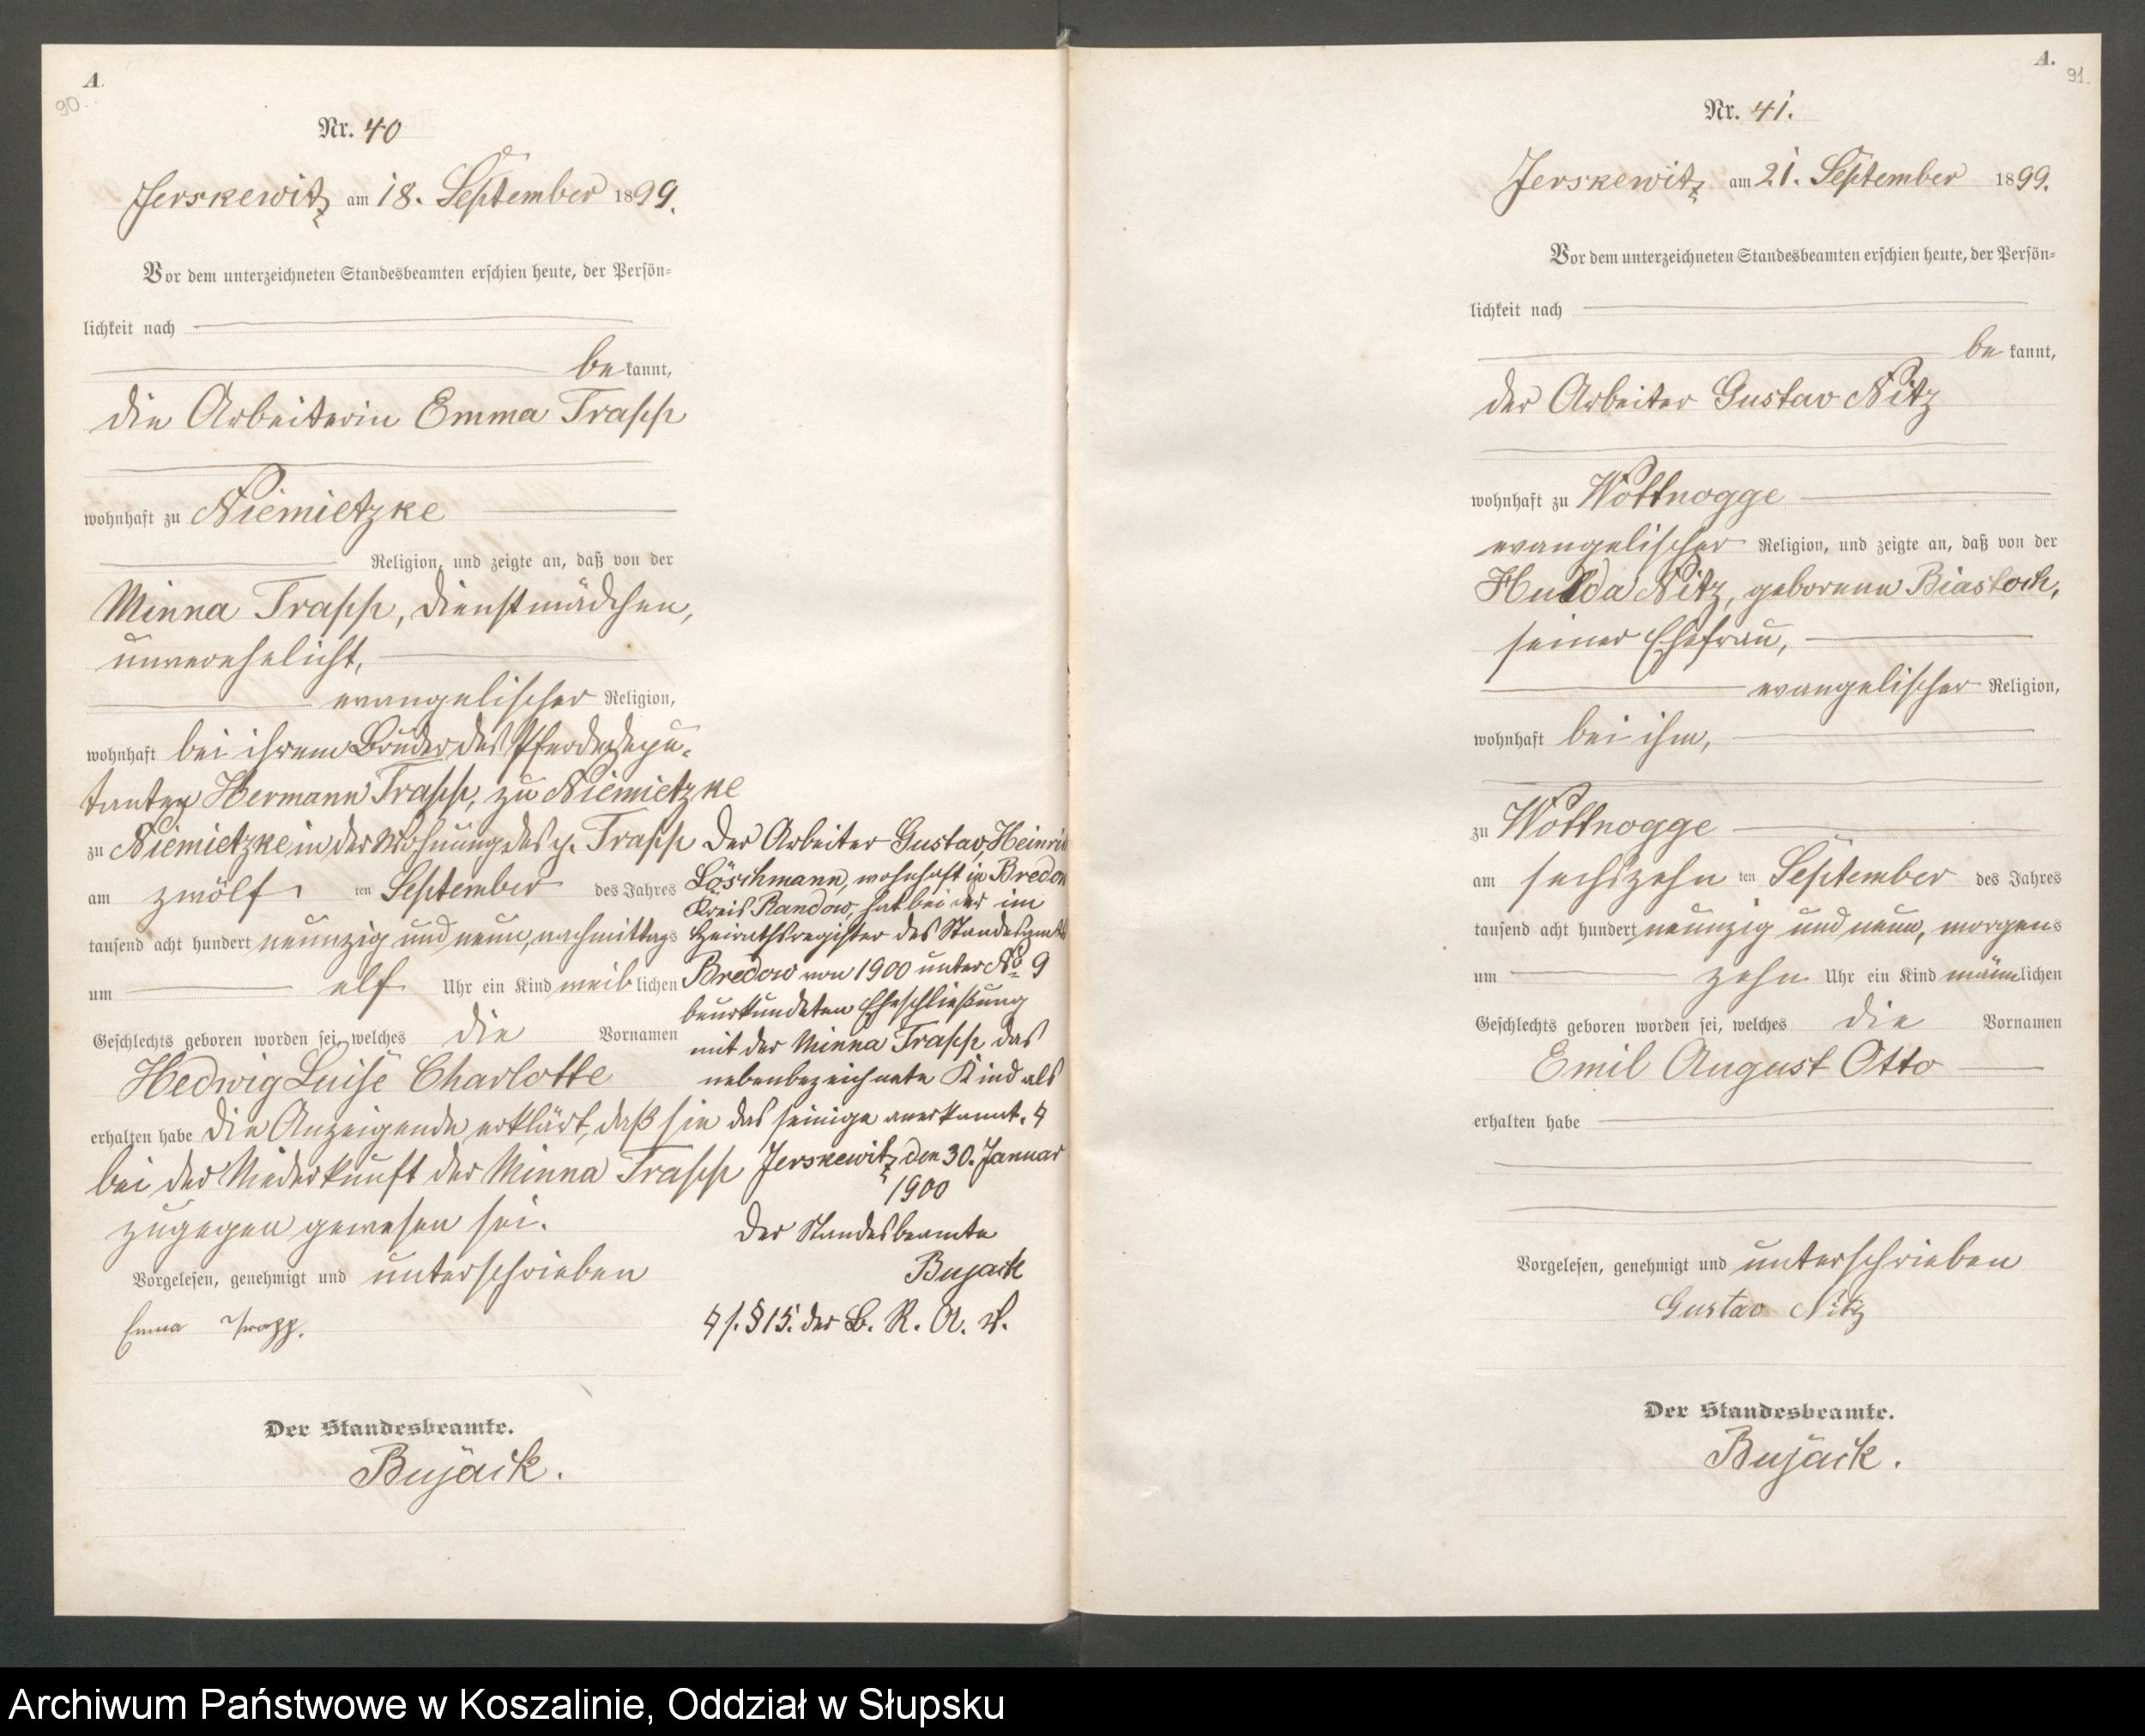 A.
90.
Nr. 40
Jerskewitz am 18. September 1899.
Vor dem unterzeichneten Standesbeamten erschien heute, der Persön-
lichkeit nach
bekannt,
die Arbeiterin Emma Trapp
wohnhaft zu Niemietzke
Religion, und zeigte an, daß von der
Minna Trapp, Dienstmädchen,
unverehelicht,
evangelischer Religion,
wohnhaft bei ihrem Bruder, des Pferdedepu-
tanten Hermann Trapp, zu Niemietzke
zu Niemietzke in der Wohnung des p. Trapp
am zwölf ten September des Jahres
tausend acht hundert neunzig und neun, nachmittags
um elf Uhr ein Kind weiblichen
Geschlechts geboren worden sei, welches die Vornamen
Hedwig Luise Charlotte
erhalten habe Die Anzeigende erklärt, daß sie
bei der Niederkunft der Minna Trapp
zugegen gewesen sei.
Vorgelesen, genehmigt und unterschrieben
Emma Trapp.
Der Standesbeamte.
Bujack.
Der Arbeiter Gustav Heinrich
Löschmann, wohnhaft in Bredow
Kreis Randow, hat bei der im
Heirathsregister des Standesamts
Bredow von 1900 unter No 9
beurkundeten Eheschließung
mit der Minna Trapp das
nebenbezeichnete Kind als
das seinige anerkannt.
Jerskewitz den 30. Januar
1900
Der Standesbeamte
Bujack
f. § 15. der B. R. A. V.
A.
91.
Nr. 41.
Jerskewitz am 21. September 1899.
Vor dem unterzeichneten Standesbeamten erschien heute, der Persön-
lichkeit nach
bekannt,
der Arbeiter Gustav Nitz
wohnhaft zu Wottnogge
evangelischer Religion, und zeigte an, daß von der
Hulda Nitz, geborene Biastoch,
seiner Ehefrau,
evangelischer Religion,
wohnhaft bei ihm,
zu Wottnogge
am sechszehn ten September des Jahres
tausend acht hundert neunzig und neun, morgens
um zehn Uhr ein Kind männlichen
Geschlechts geboren worden sei, welches die Vornamen
Emil August Otto
erhalten habe
Vorgelesen, genehmigt und unterschrieben
Gustav Nitz
Der Standesbeamte.
Bujack.
Archiwum Państwowe w Koszalinie, Oddział w Słupsku